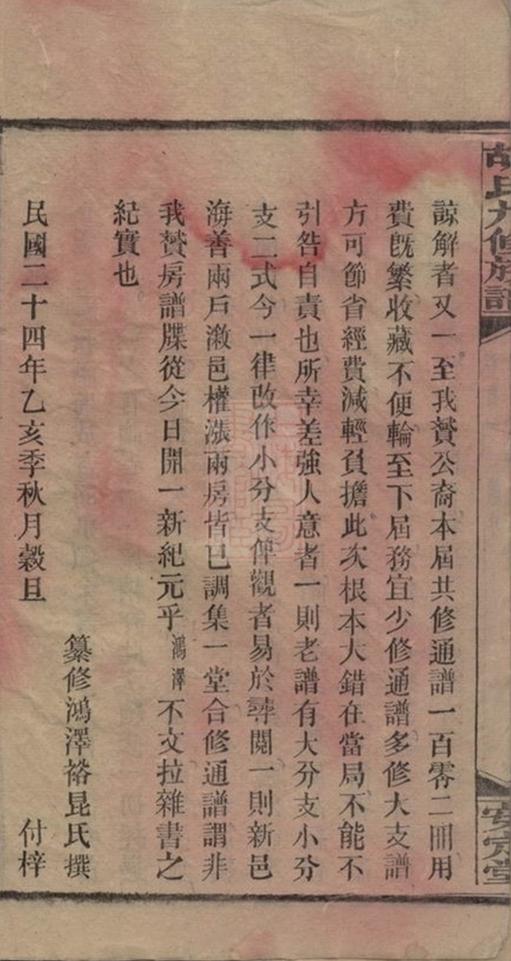 胡氏九修族譜
安定堂
諒解者又一至我贊公裔本屆共修通譜一百零二冊用
費既繁收藏不便輪至下屆務宜少修通譜多修大支譜
方可節省經費減輕負擔此次根本大錯在當局不能不
引咎自責也所幸差強人意者一則老譜有大分支小分
支二式今一律改作小分支俾觀者易於尋閱一則新邑
海善兩戶漵邑權漲兩房皆已調集一堂合修通譜謂非
我贊房譜牒從今日開一新紀元乎鴻澤不文拉雜書之
紀實也
民國二十四年乙亥季秋月穀旦
纂修鴻澤裕昆氏撰
付梓